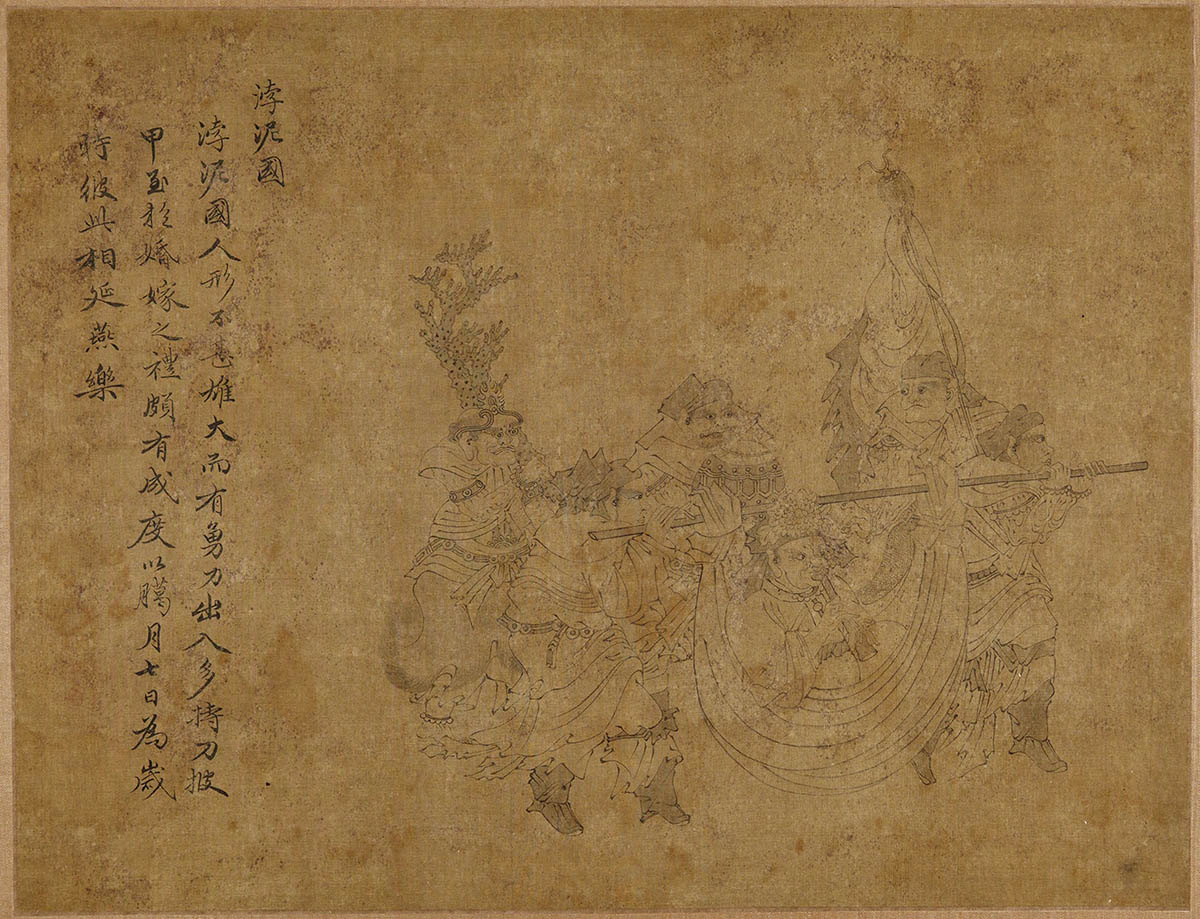 浡泥國
浡泥國人形不甚雄大而有勇力出入多持刀披
甲至於婚嫁之禮頗有成度以臈月七日為歲
時彼此相延燕樂